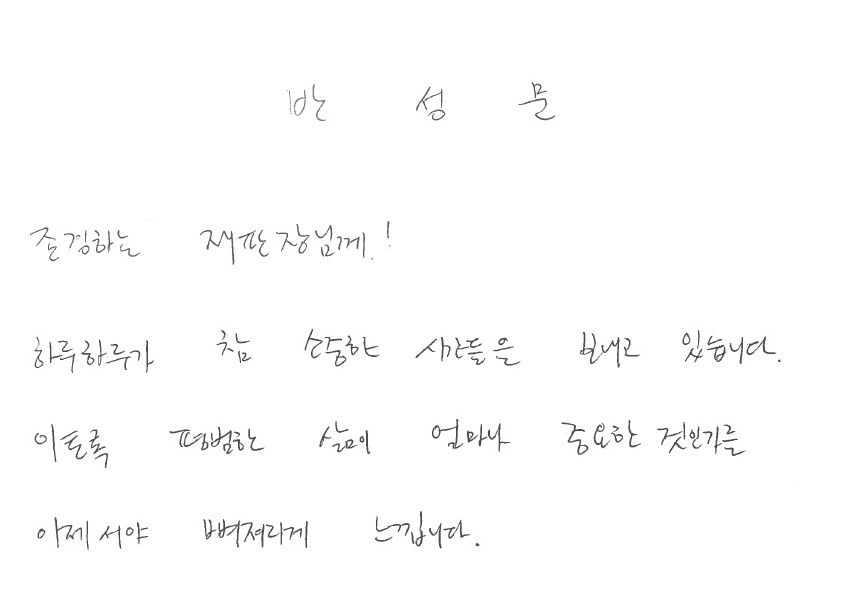 반 성 문
존경하는 재판장님께.!
하루하루가 참 소중한 시간들을 보내고 있습니다.
이토록 평범한 삶이 얼마나 중요한 것인가를
이제서야 뼈져리게 느낍니다.